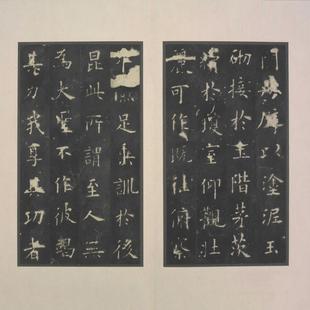 間粉壁以塗泥玉
砌接於土階茅茨
續於瓊室仰觀壯
麗可作既往俯察
足垂訓於後
昆此所謂至人無
為大聖不作彼竭
其力我享其功者